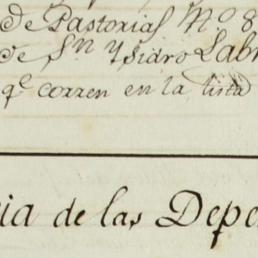 de Pastorial Nº 8
de Sn. Ysidro Labr
qe. corren en la lista
ia de las Depe